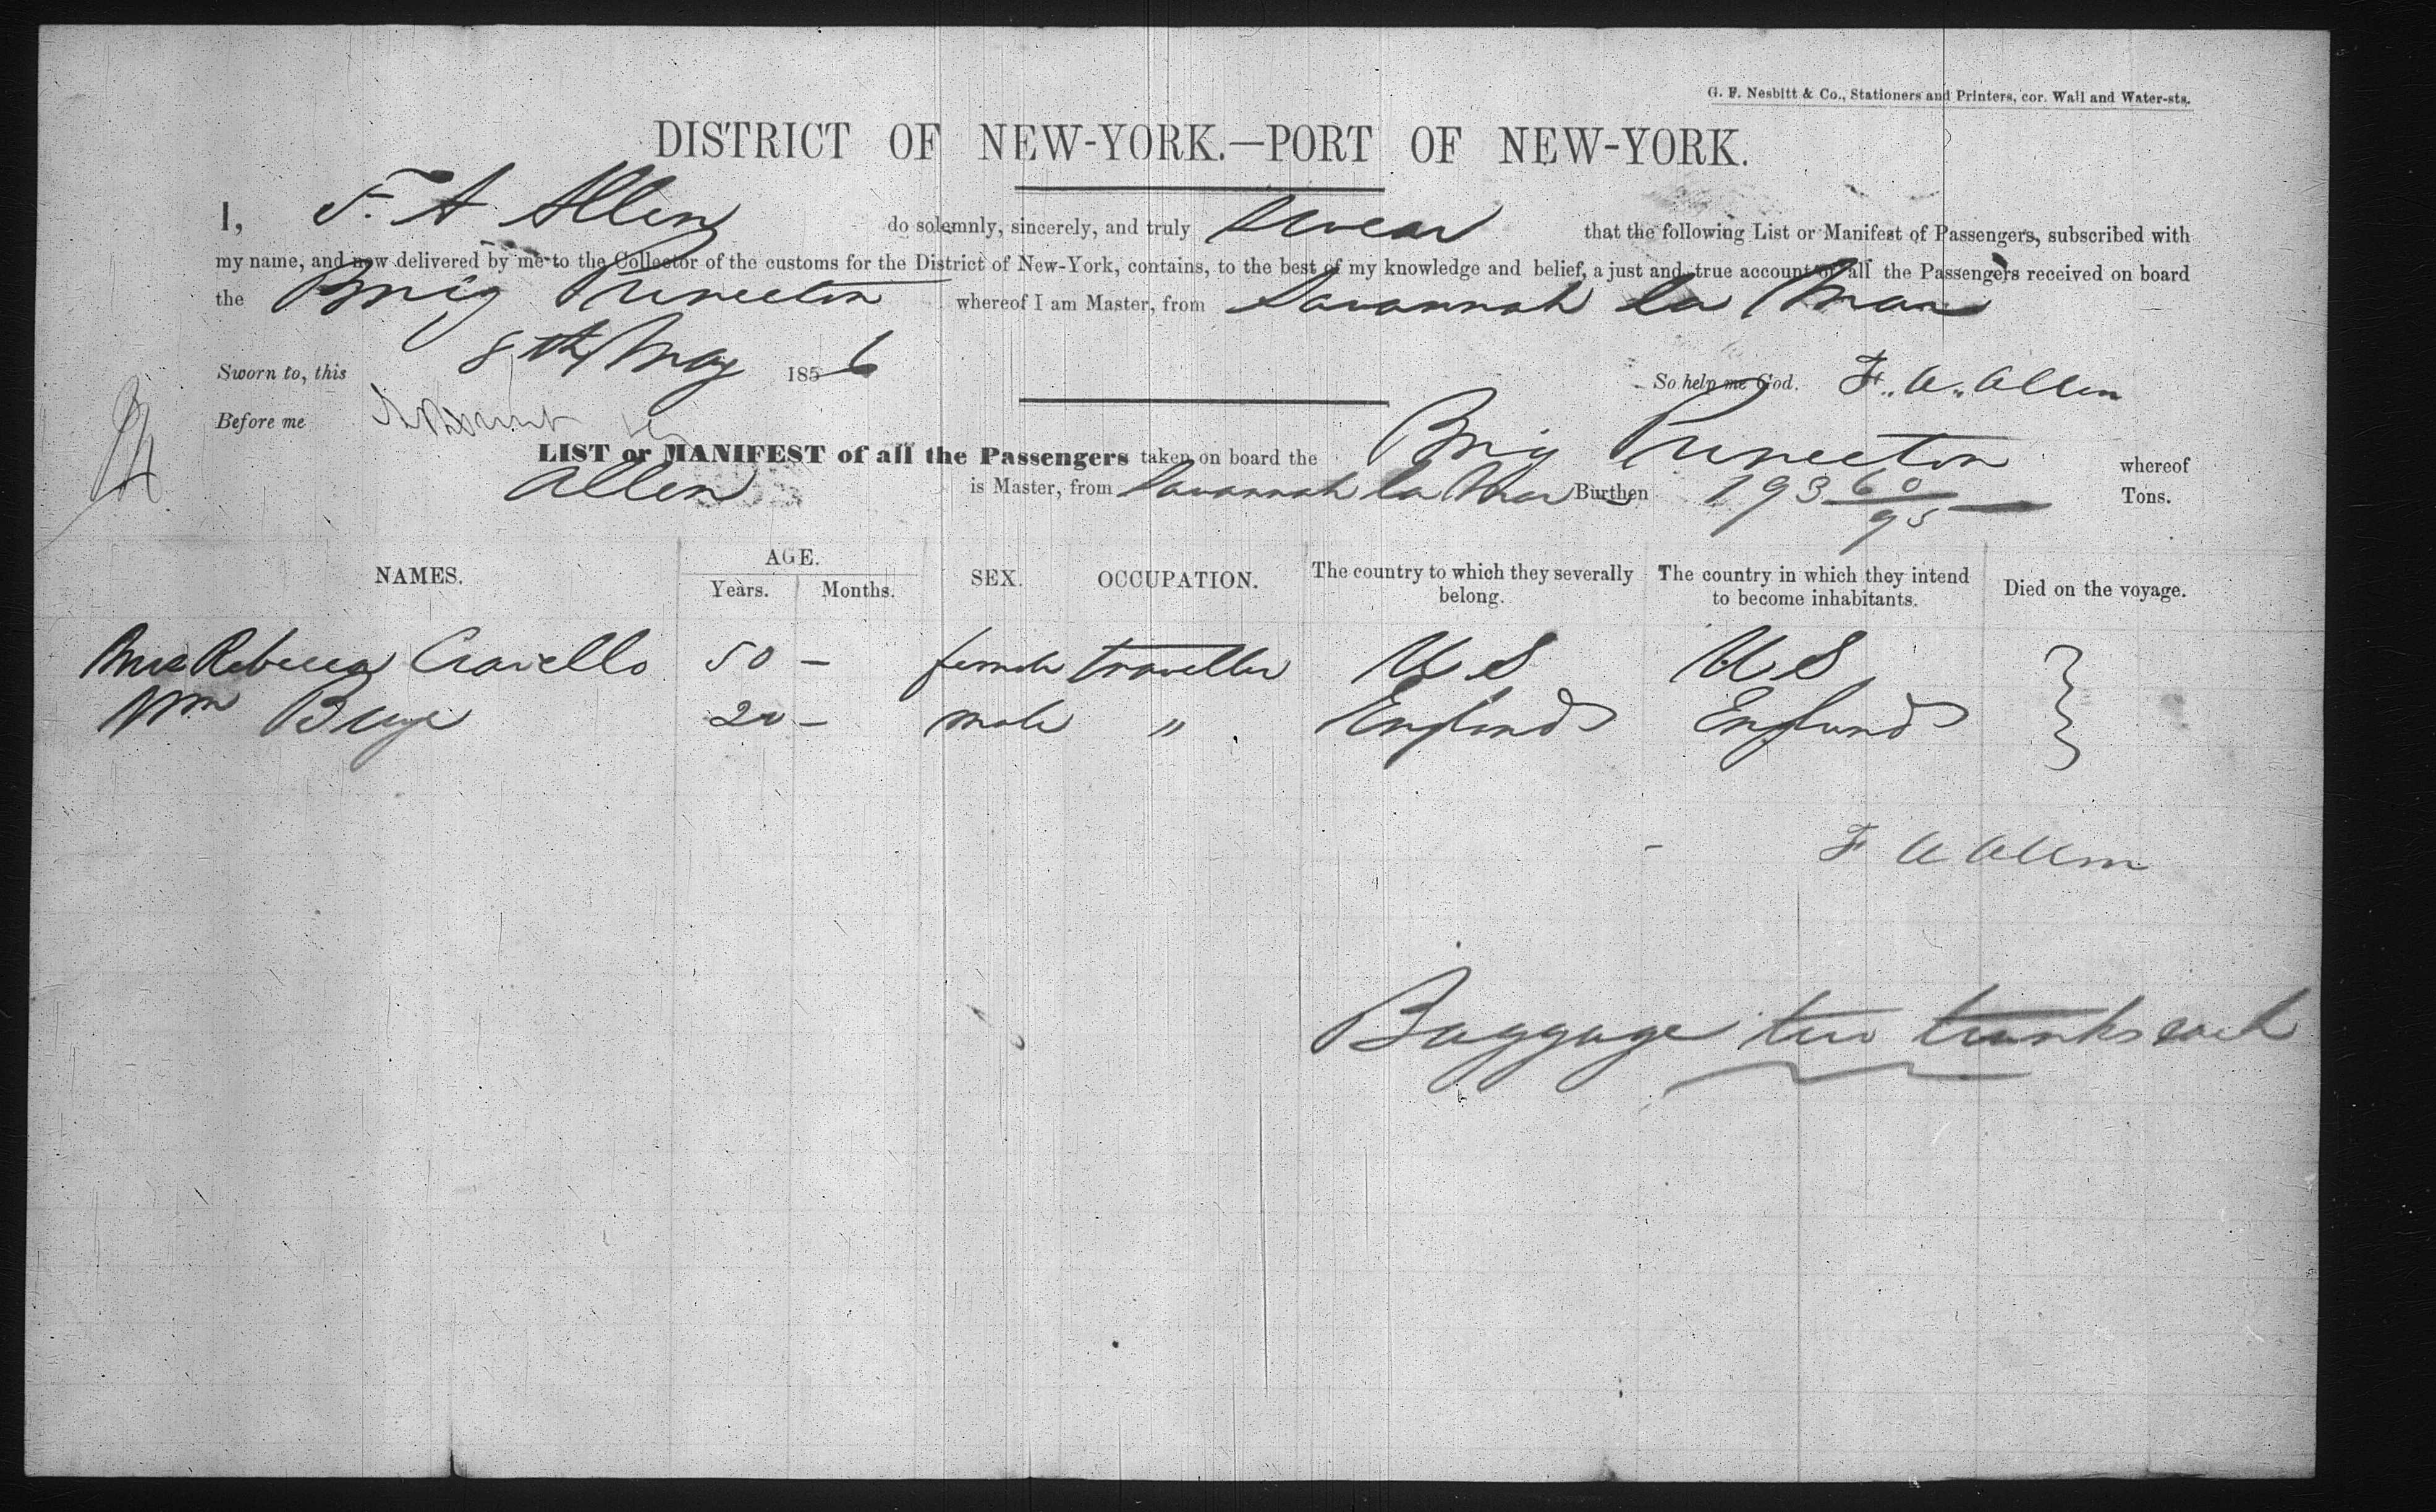 G. F. Nesbitt & Co., Stationers and Printers, cor. Wall and Water-sts.
DISTRICT OF NEW-YORK.—PORT OF NEW-YORK.
I, F. A Allen do solemnly, sincerely, and truly swear that the following List or Manifest of Passengers, subscribed with
my name, and now delivered by me to the Collector of the customs for the District of New-York, contains, to the best of my knowledge and belief, a just and true account of all the Passengers received on board
the Brig Princeton whereof I am Master, from Savannah la Mar
Sworn to, this 8th May 1856 So help me God. F. A. Allen
Before me
LIST or MANIFEST of all the Passengers taken on board the Brig Princeton whereof
Allen is Master, from Savannah la Mar Burthen 193 60/95 Tons.
NAMES. AGE. Years. Months. SEX. OCCUPATION. The country to which they severally belong. The country in which they intend to become inhabitants. Died on the voyage.
Mrs Rebecca 50 – female traveller U S U S
Wm 20 – male " England England
F A Allen
Baggage two trunks each